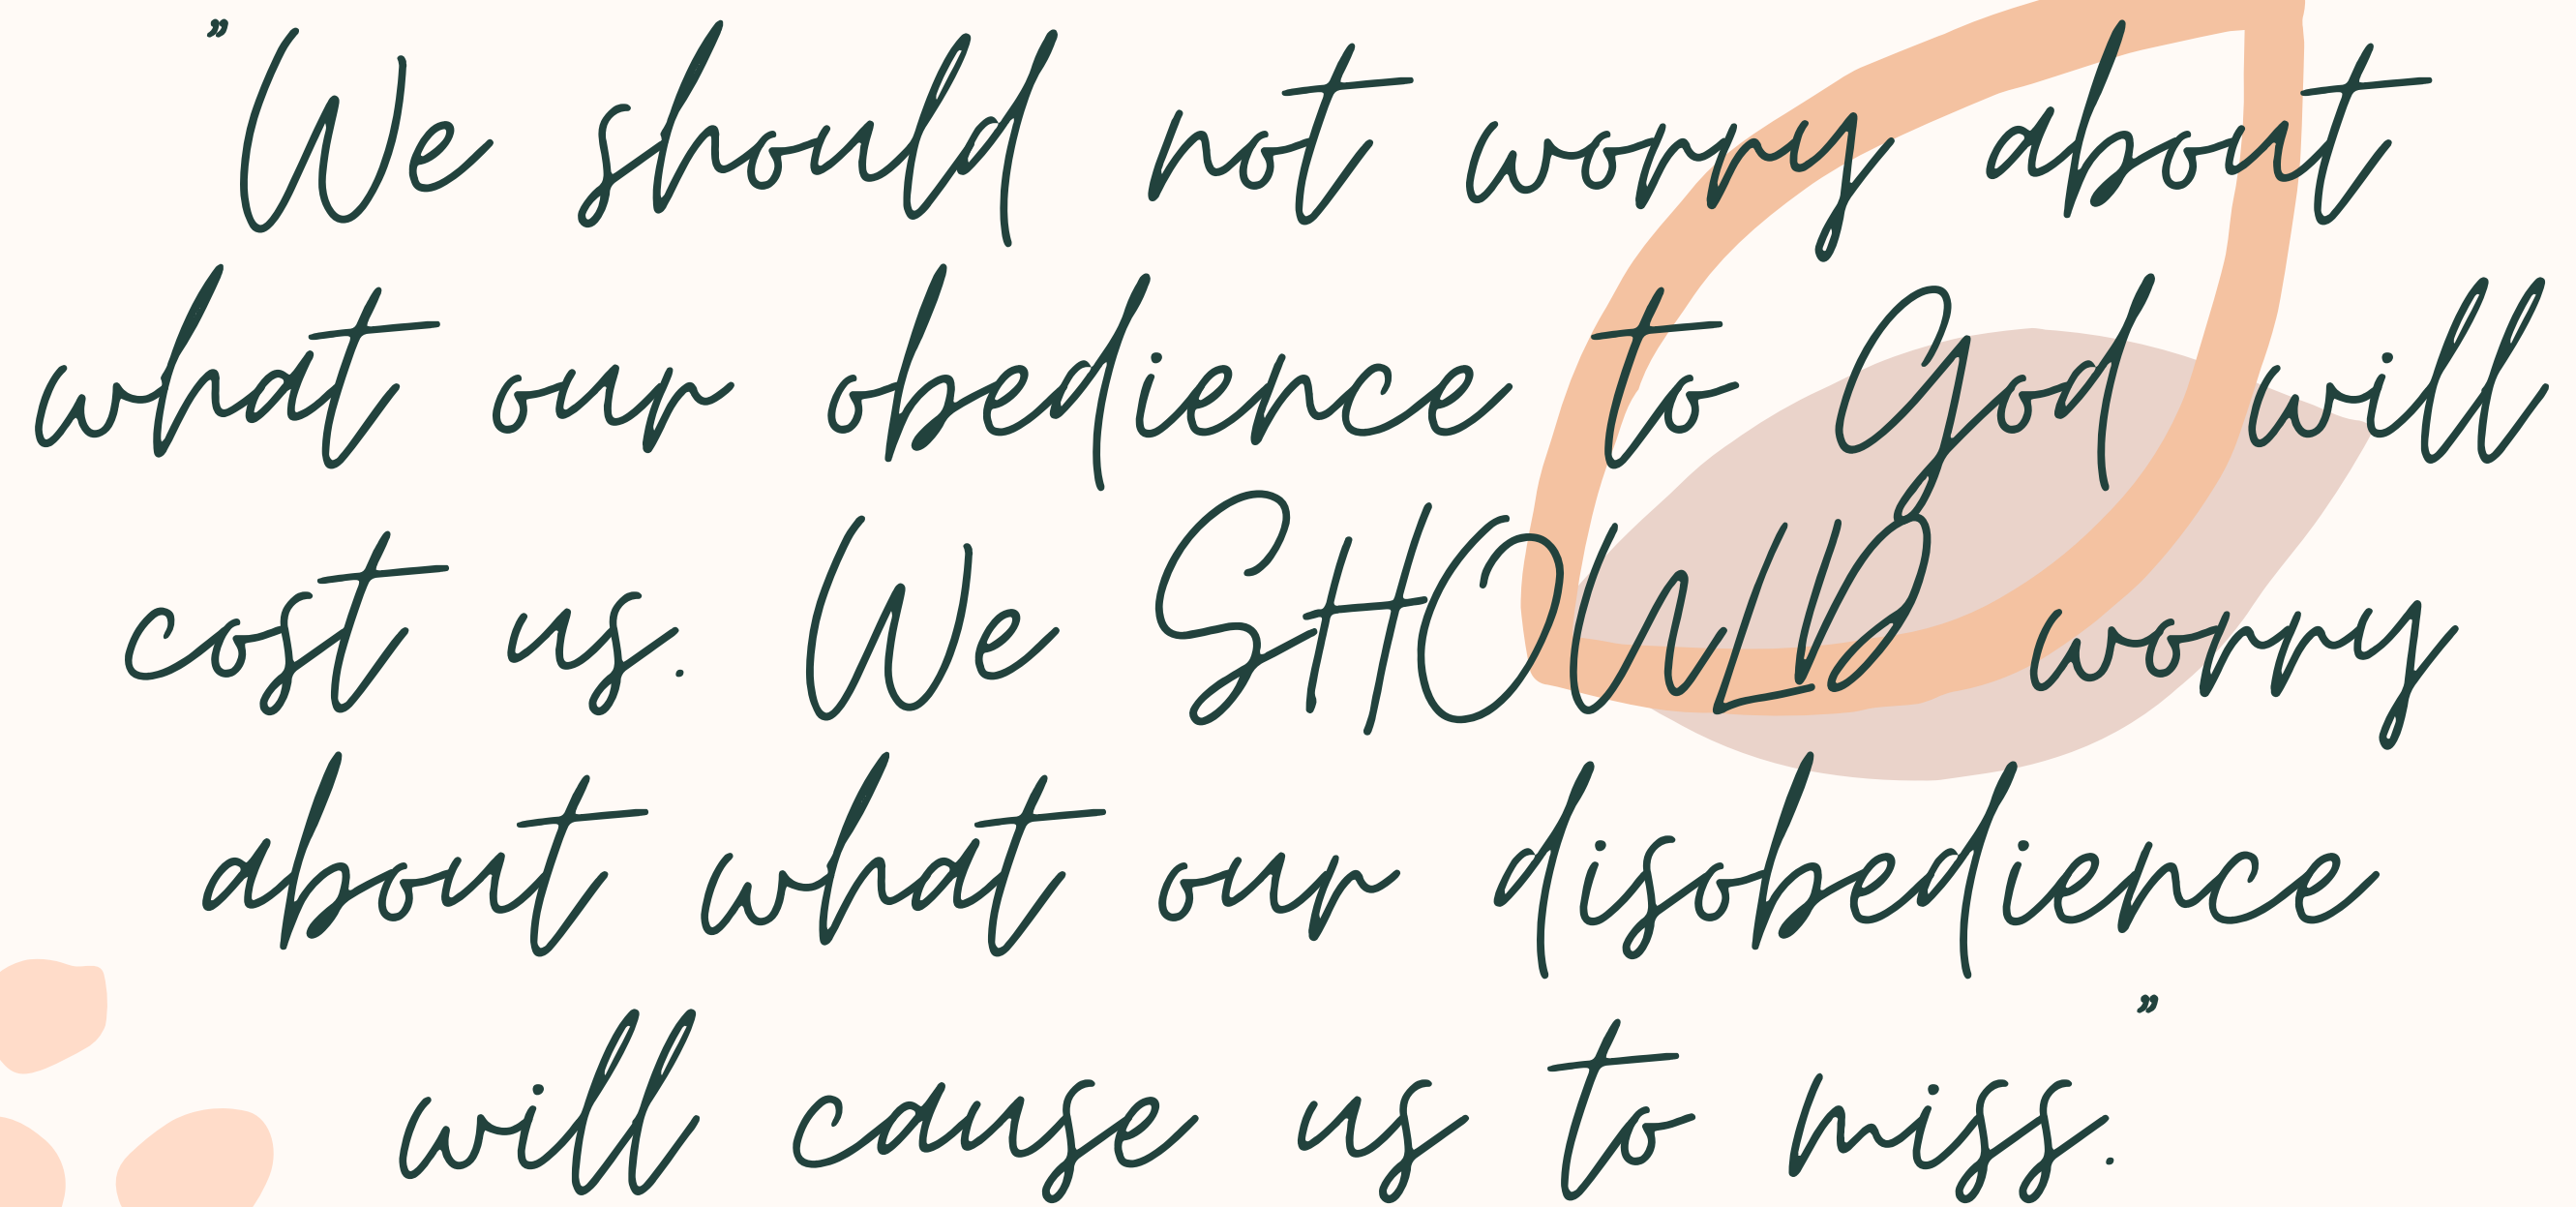 ”We should not worry about
what our obedience to God will
cost us. We SHOULD worry
about what our disobedience
will cause us to miss.”